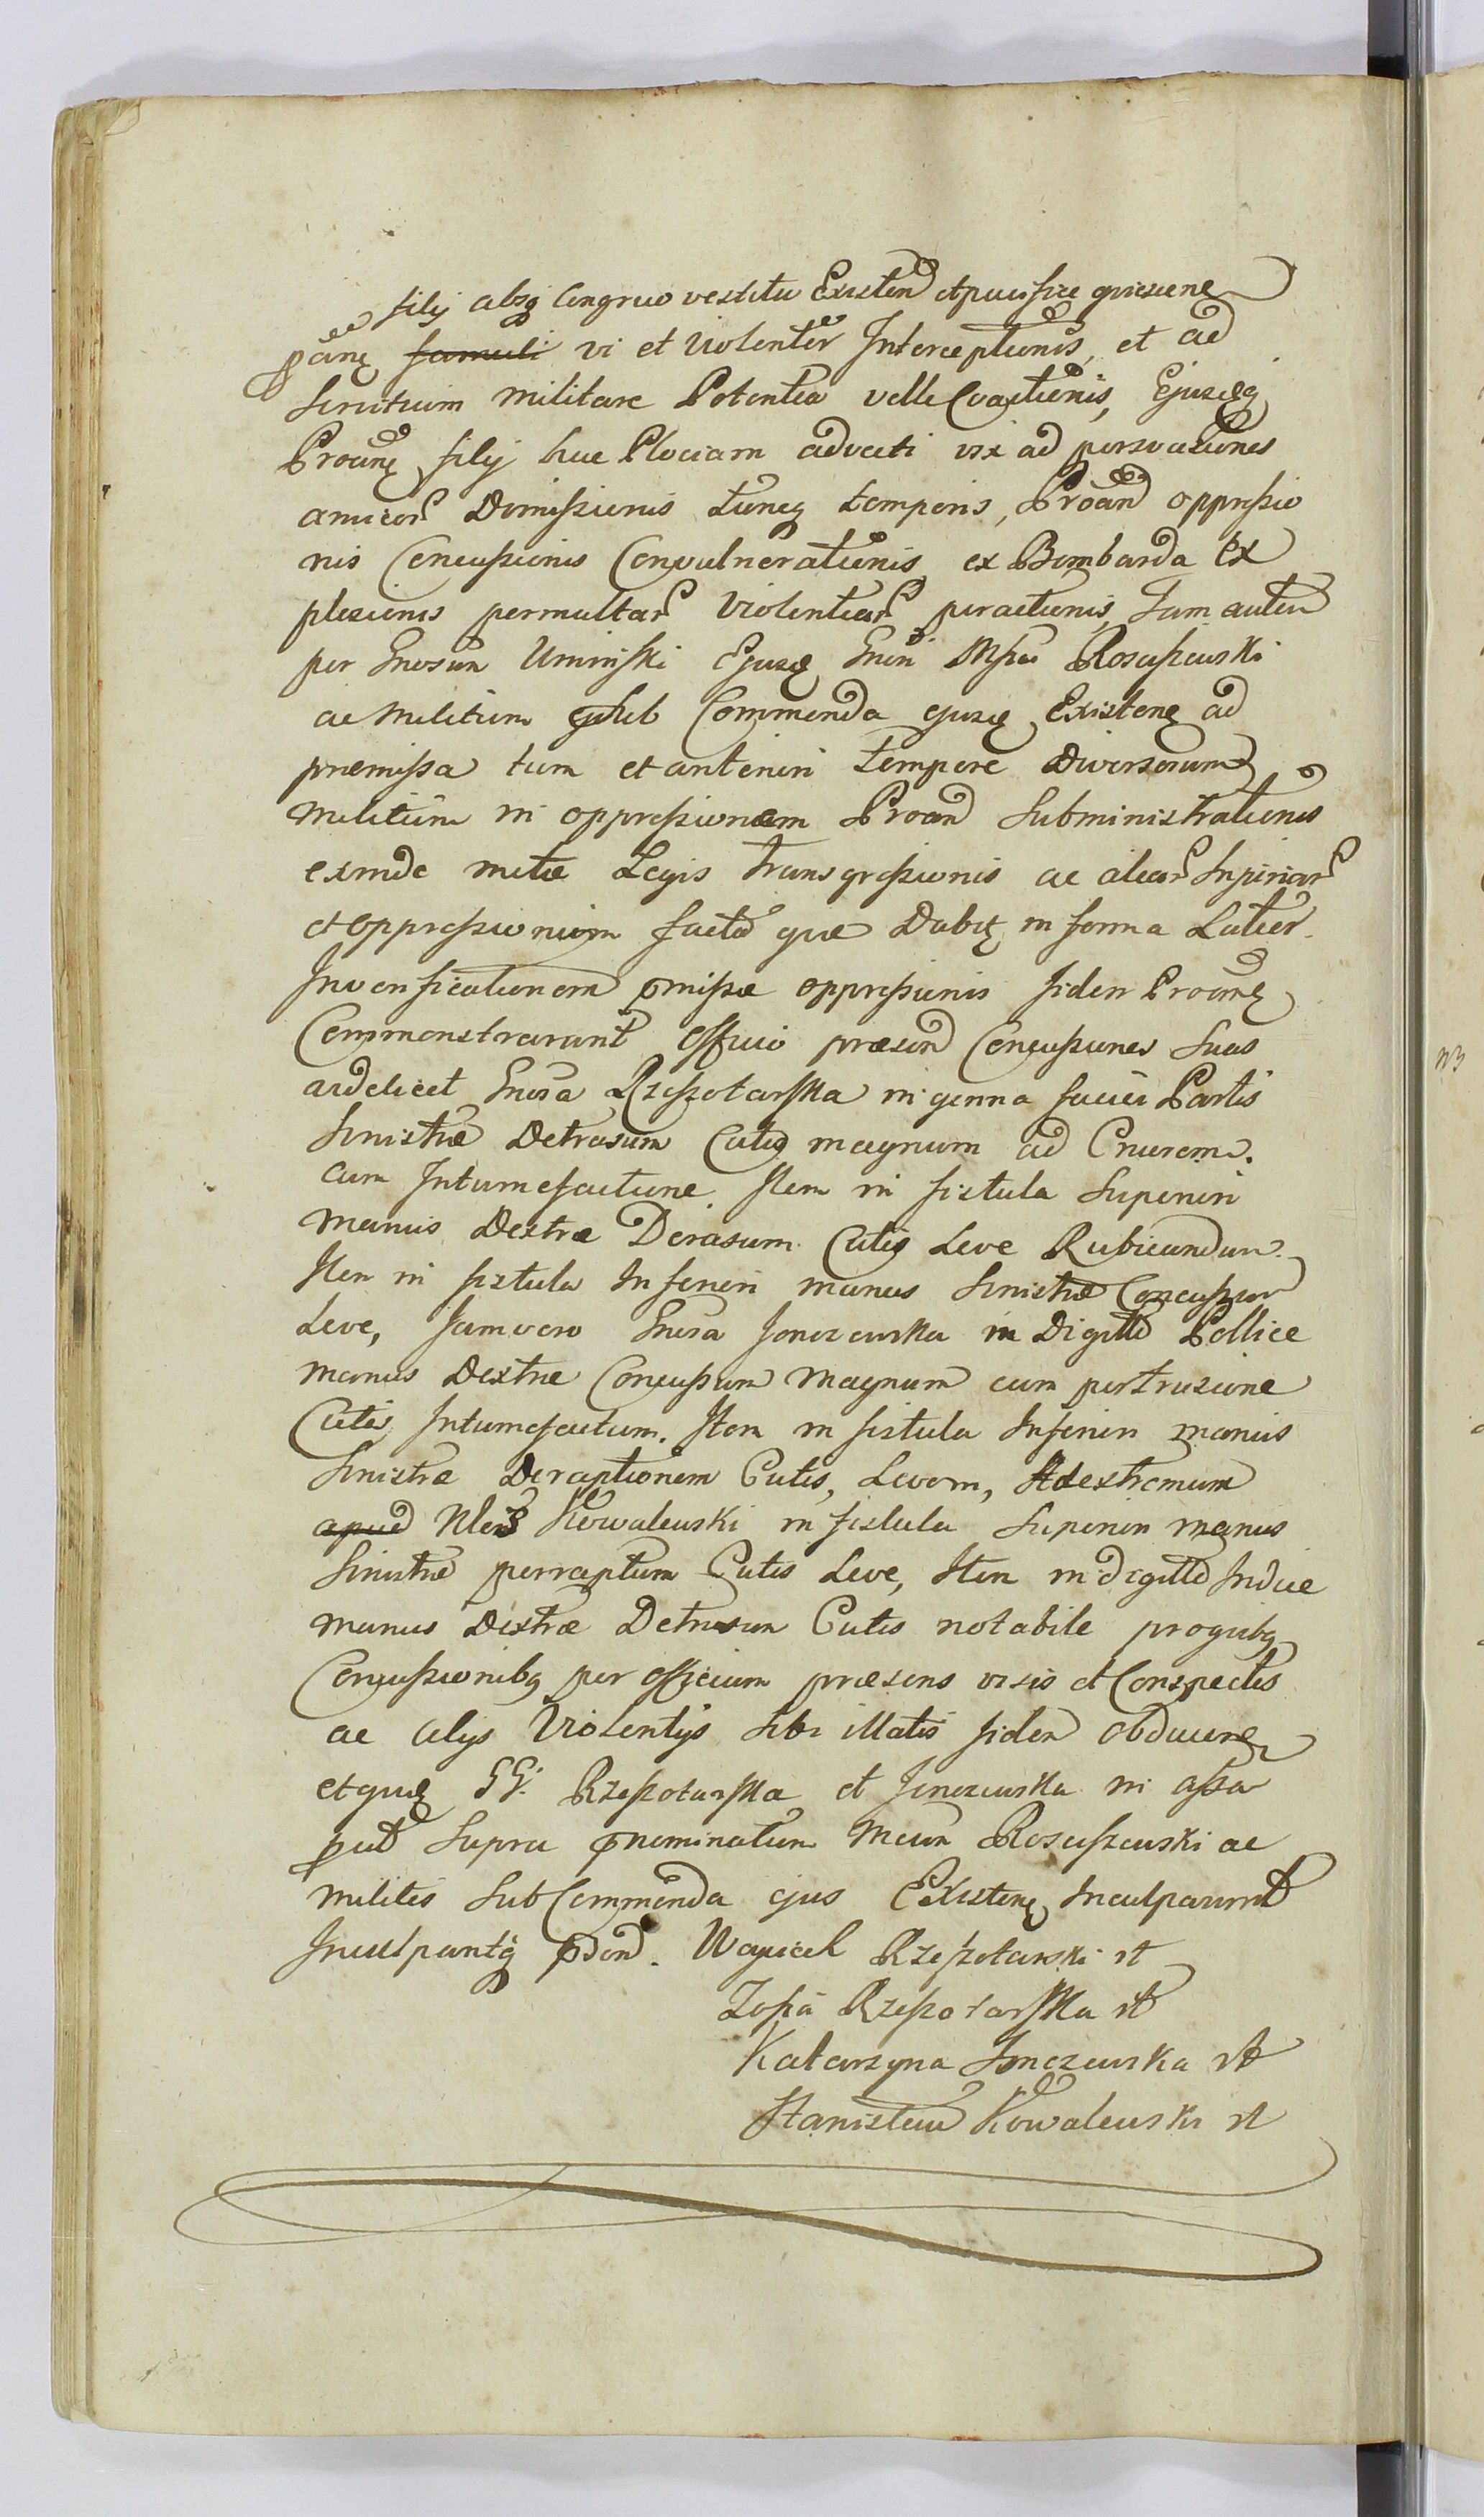 filij absq Congruo vestitu Existen et pacifice quiescene
pane famuli vi et violenter Interceptionis, et ad
Servitium militare Potentia velle Coactionis, Ejusdq
Proane filij huc Plociam advecti vix ad persvasiones
amicor Dimissionis tuncq temporis, Proand oppressio
nis Concussionis Convulnerationis ex Bombarda Ex
plosionis permultar violentiar peractionis, Tam autem
per Gnosum Uminski Ejusq Gnen Roscuszewski
ac militum sub Commenda ejusq Existene ad
praemissa tum et anteriori tempore Diversorum
militum in oppressionem Proand Subministrationis
exinde metae Legis transgressionis ac aliar Injuriar
et oppressionum facta quae Dabit in forma Latior
In verificationem pmissae oppressionis siden Proane
Commonstrarunt officio praesen Concussiones Suas
videlicet Gnosa Rzeszotarska in genna faciei Partis
Sinistrae Detrasum Cutis magnum ad Cruorem.
cum Intumefactione. Item in fistula Superiori
manus Dextrae Derasum Cutis Leve Rubicundum.
Item in fistula Inferiori manus Sinistrae Concussum
Leve, Jamvero Gnosa Jonczewska in Digitto Pollice
manus Dextrae Concussum magnum cum pertrusione
Cutis Intumefactum. Item in fistula Inferiori manus
Sinistrae Deraptionem Cutis, Levem, Ad extremum
apud Kowalewski in fistula Superiori manus
Sinistrae perraptum Cutis Leve, Item in digitto Indice
manus Dextrae Detrusum Cutis notabile pro quibq
Concussionibq per officium praesens visis et Conspectis
ac alijs violentijs sibi illatis siden obducune
et quid GG. Rzeszotarska et Jonczewska in assa
put Supra pnominatum Roscuszewski ac
milites Sub Commenda ejus Existene Inculparunt
Inculpantq pdend. Woyciech Rzeszotarski rt
Zofia Rzeszotarska rt
Katarzyna Jonczewska rt
Stanisław Kowalewski rt